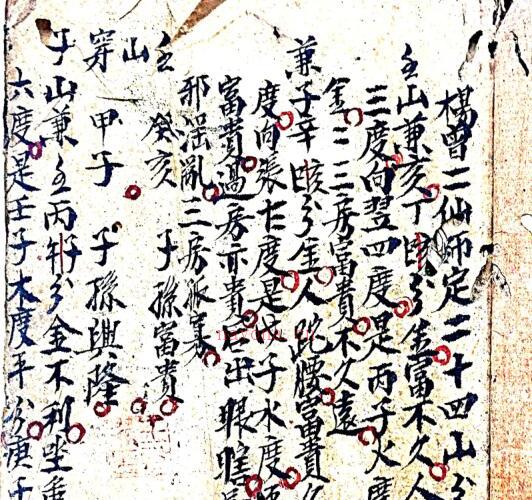 楊曾二仙師定二十四山分
壬山兼亥丁
分金富不久人
三度向翌四度是丙子火度
金二三房富貴不久遠
兼子辛
分金人跎腰富貴
度向張七度是戊子水度
富貴過房亦貴后出眼瞎
邪淫亂三房孤寡
壬山
癸亥 子孫富貴
穿 甲子 子孫興隆
子山兼壬丙午分金不利坐
六度是壬子木度平分庚子